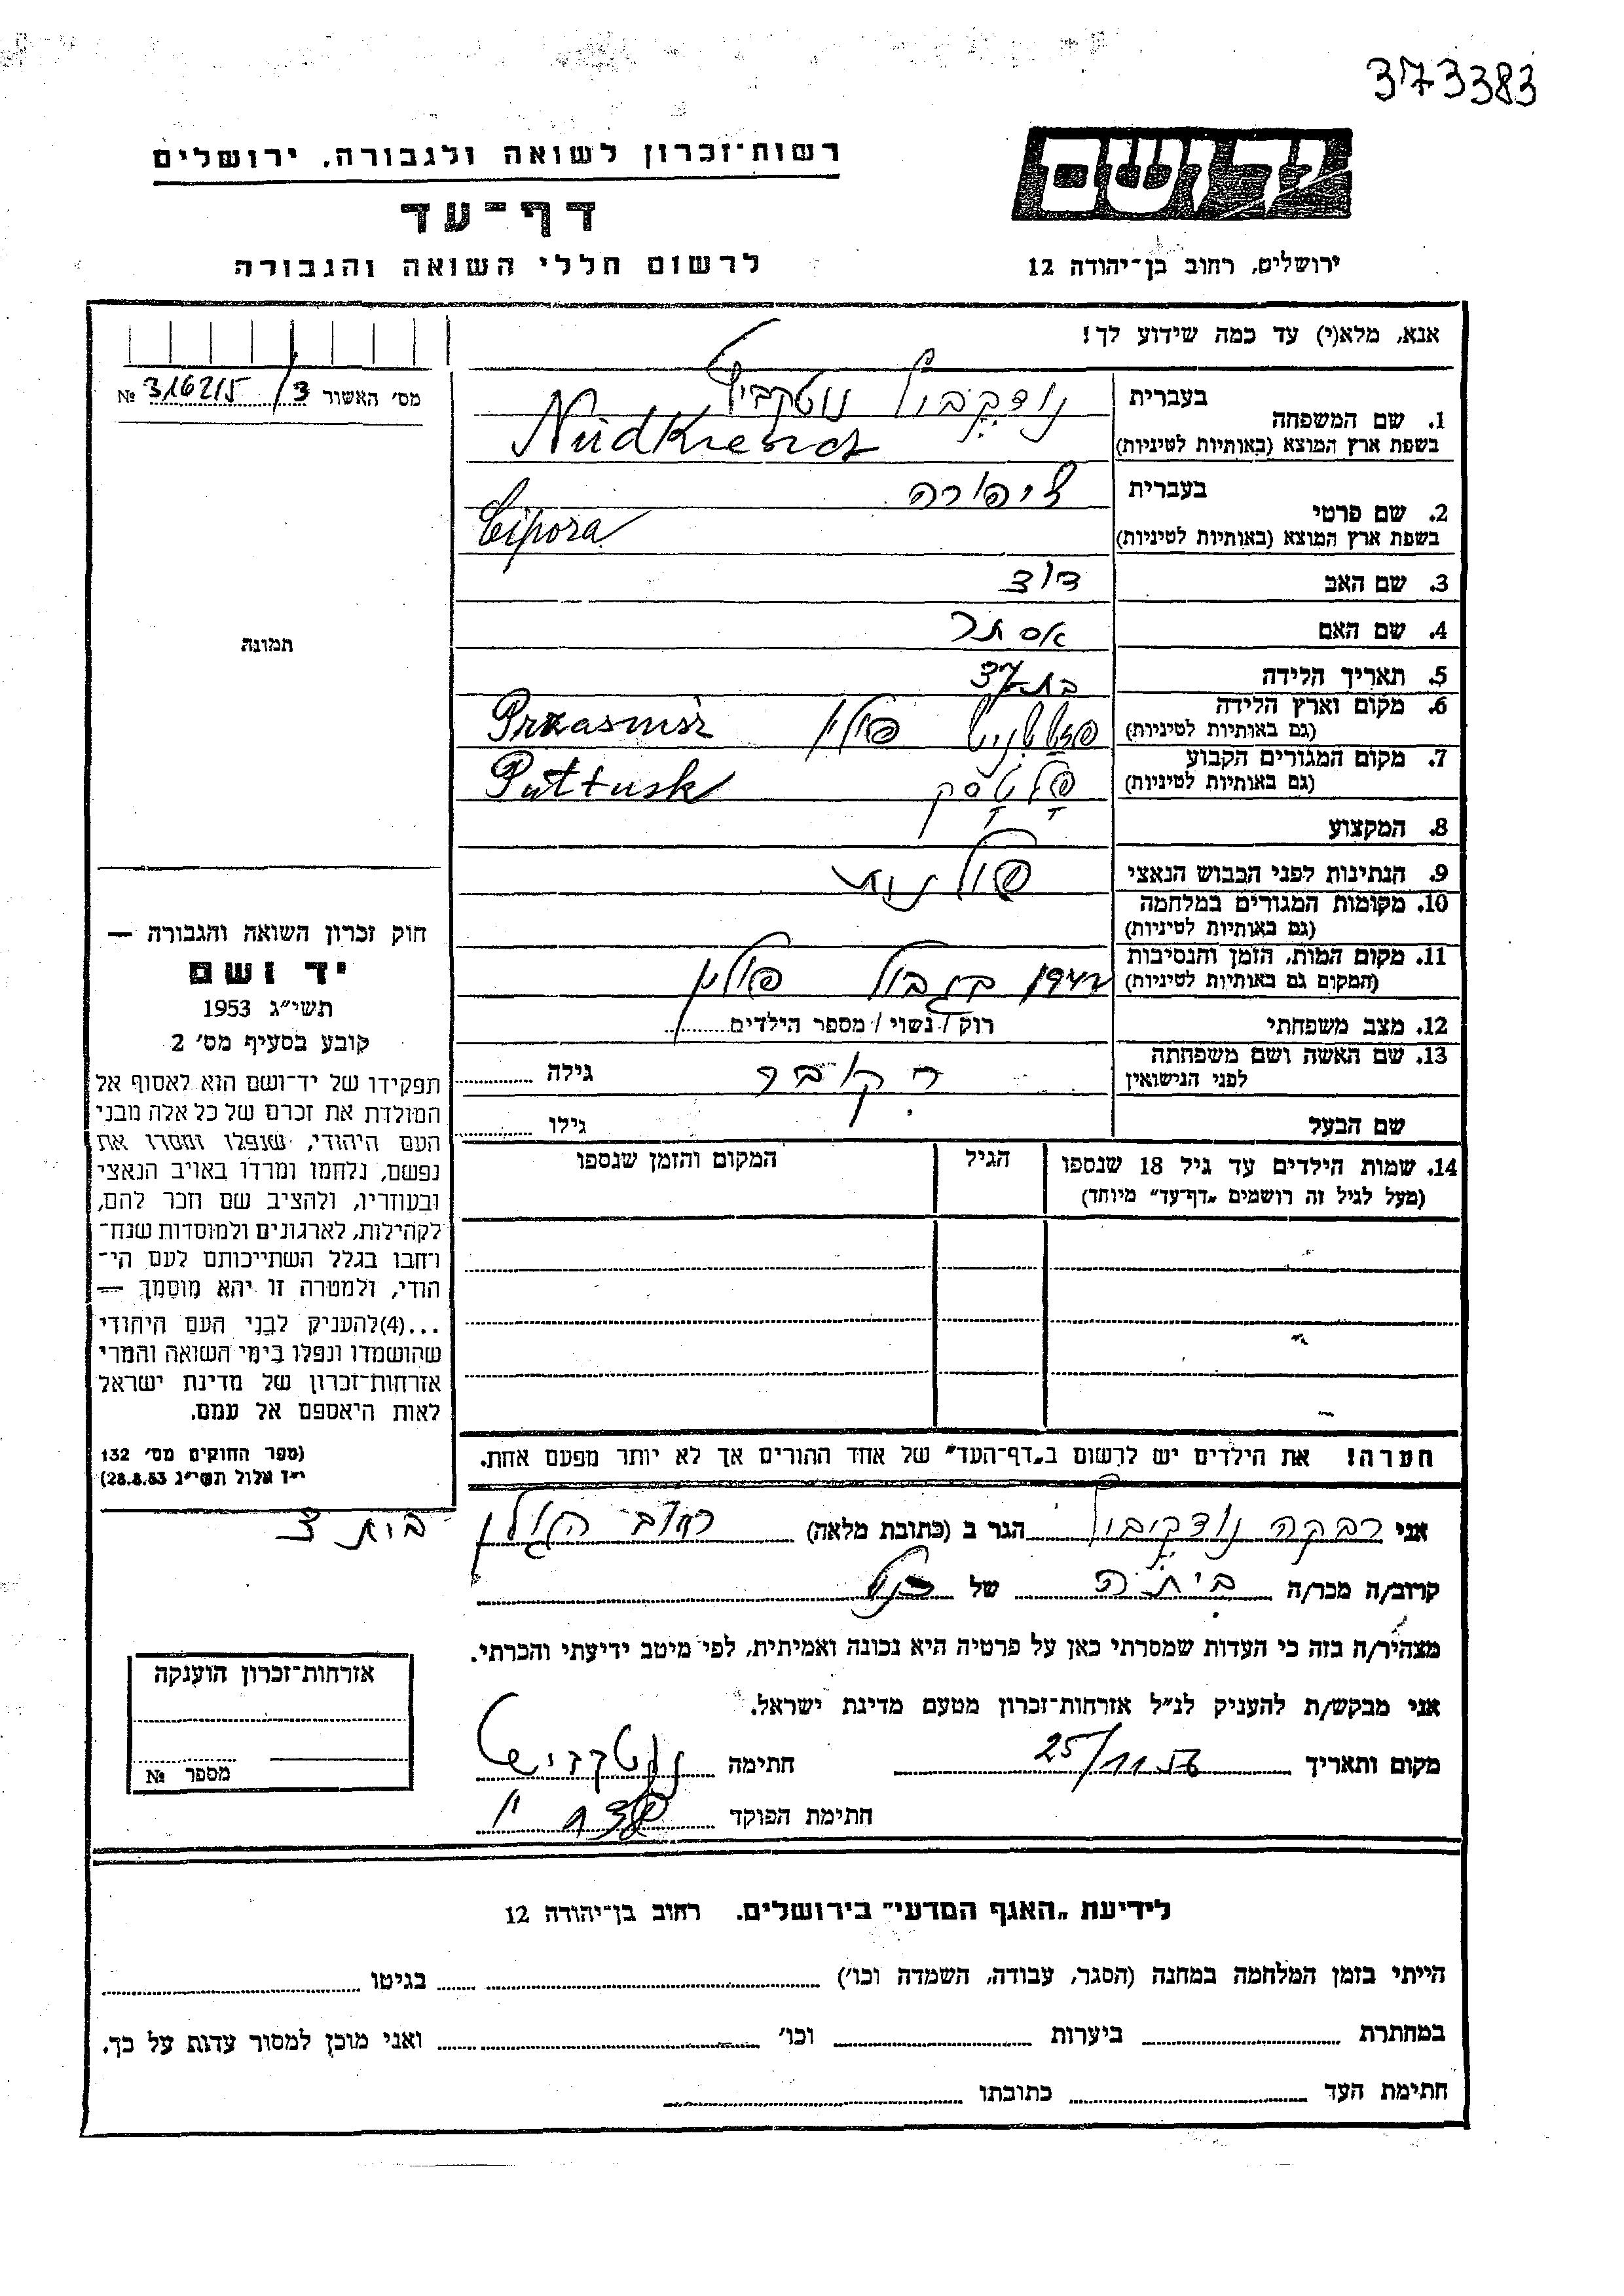 373383
יד ושם
רשות־זכרון לשואה ולגבורה, ירושלים
דף־עד
לרשום חללי השואה והגבורה
ירושלים, רחוב בן־יהודה 12
אנא, מלא(י) עד כמה שידוע לך!
מס׳ האשור 316215/3 №
תמונה
1. שם המשפחה
בעברית
בשפת ארץ המוצא (באותיות לטיניות)
2. שם פרטי
בעברית ציפורה
בשפת ארץ המוצא (באותיות לטיניות) Cipora
3. שם האב דוד
4. שם האם אסתר
5. תאריך הלידה בת 37
6. מקום וארץ הלידה
(גם באותיות לטיניות) פולין
7. מקום המגורים הקבוע
(גם באותיות לטיניות) פולטוסק Pułtusk
8. המקצוע
9. הנתינות לפני הכבוש הנאצי פולנית
10. מקומות המגורים במלחמה
(גם באותיות לטיניות)
11. מקום המות, הזמן והנסיבות
(המקום גם באותיות לטיניות) 1942 פולין
12. מצב משפחתי רוק / נשוי / מספר הילדים
13. שם האשה ושם משפחתה
לפני הנישואין גילה
שם הבעל גילו
14. שמות הילדים עד גיל 18 שנספו הגיל המקום והזמן שנספו
(מעל לגיל זה רושמים „דף־עד״ מיוחד)
הערה! את הילדים יש לרשום ב„דף־העד״ של אחד ההורים אך לא יותר מפעם אחת.
חוק זכרון השואה והגבורה —
יד ושם
תשי״ג 1953
קובע בסעיף מס׳ 2
תפקידו של יד־ושם הוא לאסוף אל
המולדת את זכרם של כל אלה מבני
העם היהודי, שנפלו ומסרו את
נפשם, נלחמו ומרדו באויב הנאצי
ובעוזריו, ולהציב שם וזכר להם,
לקהילות, לארגונים ולמוסדות שנח־
רחבו בגלל השתייכותם לעם הי־
הודי, ולמטרה זו יהא מוסמך —
...(4)להעניק לבני העם היהודי
שהושמדו ונפלו בימי השואה והמרי
אזרחות־זכרון של מדינת ישראל
לאות היאספם אל עמם.
(ספר החוקים מס׳ 132
י״ז אלול תשי״ג 28.8.53)
אני רבקה הגר ב (כתובת מלאה) רחוב
קרוב/ה מכר/ה של
מצהיר/ה בזה כי העדות שמסרתי כאן על פרטיה היא נכונה ואמיתית, לפי מיטב ידיעתי והכרתי.
אני מבקש/ת להעניק לנ״ל אזרחות־זכרון מטעם מדינת ישראל.
מקום ותאריך 25/11 56 חתימה
חתימת הפוקד
אזרחות־זכרון הוענקה
מספר №
לידיעת „האגף המדעי״ בירושלים. רחוב בן־יהודה 12
הייתי בזמן המלחמה במחנה (הסגר, עבודה, השמדה וכו׳) בגיטו
במחתרת ביערות וכו׳ ואני מוכן למסור עדות על כך.
חתימת העד כתובתו